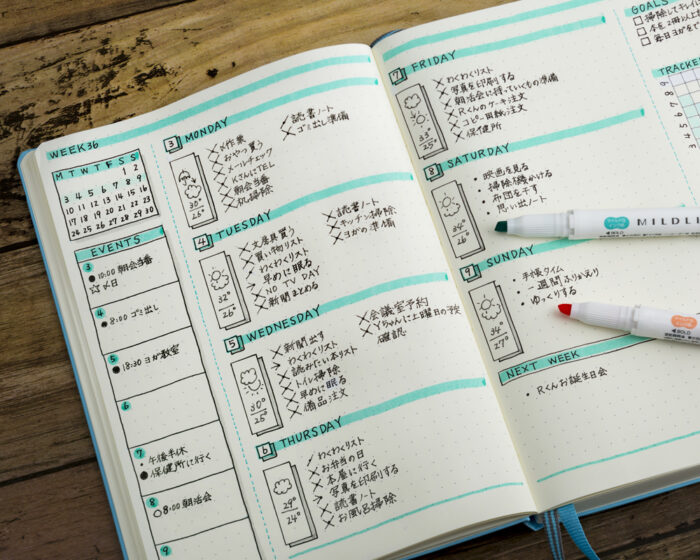 WEEK36
M T W T F S S
1 2
3 4 5 6 7 8 9
10 11 12 13 14 15 16
17 18 19 20 21 22 23
24 25 26 27 28 29 30
EVENTS
3
10:00 朝会当番
☆〆日
4
8:00 ゴミ出し
5
18:30 ヨガ教室
6
7
午後半休
保健所に行く
8
8:00 朝活会
9
3 MONDAY
30°
26°
〆作業
おやつ買う
メールチェック
KさんにTEL
朝会当番
机掃除
読書ノート
ゴミ出し準備
4 TUESDAY
32°
26°
文房具買う
買い物リスト
わくわくリスト
早めに眠る
NO TV DAY
新聞まとめる
読書ノート
キッチン掃除
ヨガの準備
5 WEDNESDAY
30°
25°
新聞出す
わくわくリスト
読みたい本リスト
トイレ掃除
早めに眠る
備品注文
会議室予約
Yちゃんに土曜日の予
確認
6 THURSDAY
29°
24°
わくわくリスト
お弁当の日
本屋に行く
写真を印刷する
読書ノート
お風呂掃除
7 FRIDAY
33°
25°
わくわくリスト
写真を印刷する
朝活会に持っていくもの準備
Rくんのケーキ注文
コピー用紙注文
保健所
8 SATURDAY
34°
26°
映画を見る
掃除機かける
布団を干す
思い出ノート
9 SUNDAY
34°
27°
手帳タイム
一週間ふりかえり
ゆっくりする
NEXT WEEK
Rくんお誕生日会
GOALS
掃除してキレイに
本を2冊以上
毎日ヨガをで
TRACKE
MILDLI
BOLD
BOLD